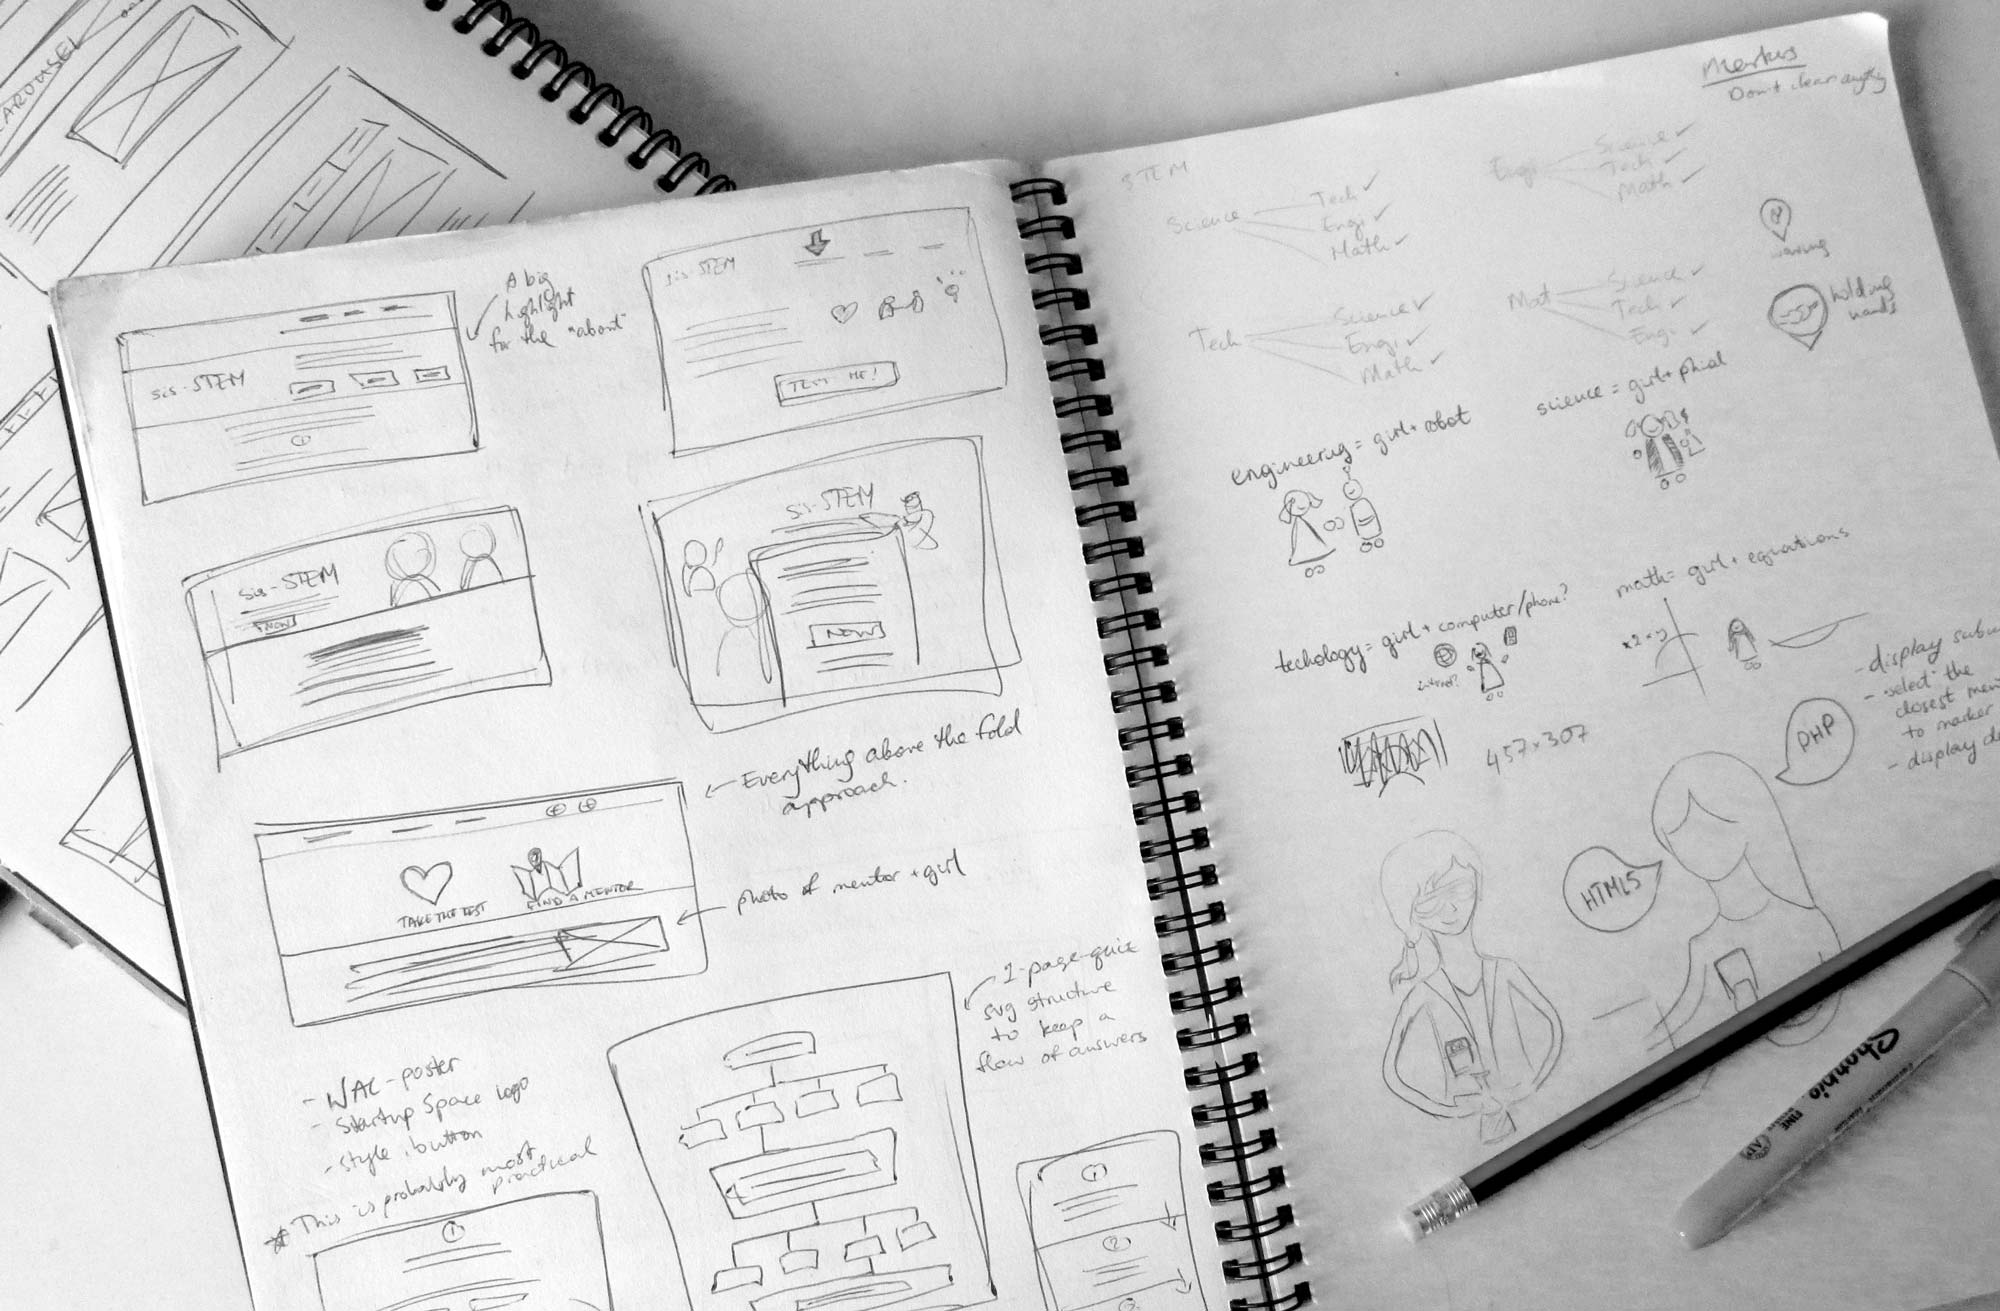 CAROUSEL
A big
highlight
for the "about"
sis-STEM
sis-STEM
TEST ME!
sis-STEM
NOW
sis-STEM
NOW
Everything above the fold
approach.
TAKE THE TEST
FIND A MENTOR
photo of mentor + girl
1-page-quiz
svg structure
to keep a
flow of answers
- WAC-poster
- Startup Space logo
- style button
* This is probably most
practical
1
1
2
Don't clear anything
STEM
Science
Tech ✓
Engi ✓
Math ✓
Engi
Science ✓
Tech ✓
Math ✓
Tech
Science ✓
Engi ✓
Math ✓
Mat
Science ✓
Tech ✓
Engi ✓
waving
holding
hands
engineering = girl + robot
science = girl + phial
techology = girl + computer/phone?
internet?
math = girl + equations
457 x 307
- display
- "select" the
closest
to marker
- display
PHP
HTML5
Sharpie
FINE